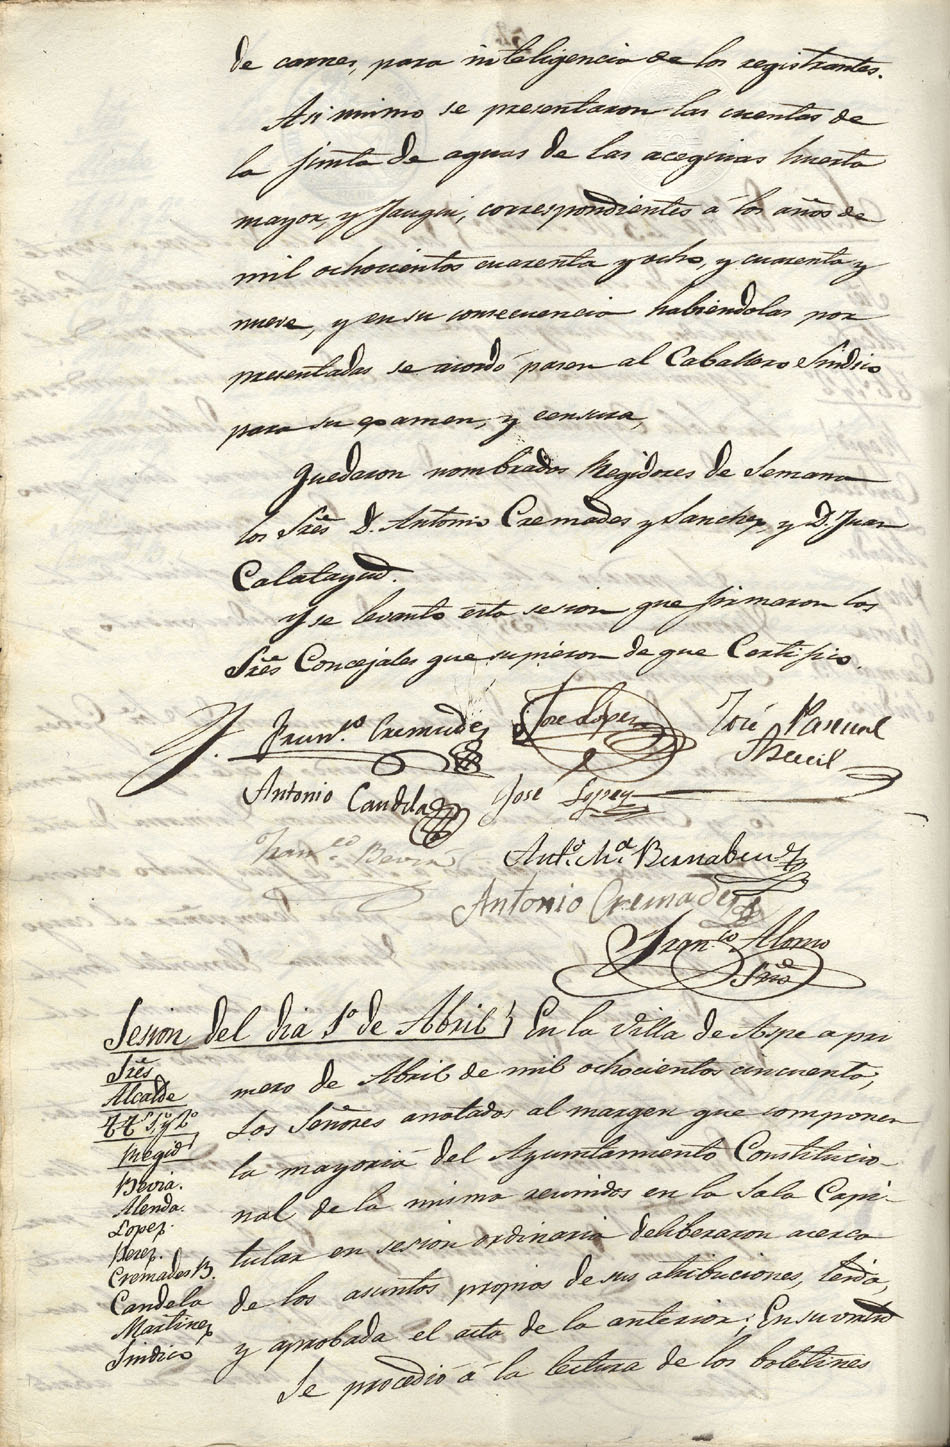 de carnes, para inteligencia de los registrantes.
Asi mismo se presentaron las cuentas de
la Junta de aguas de las acequias huerta
mayor, y Fauqui, correspondientes á los años de
mil ochocientos cuarenta y ocho, y cuarenta y
nueve, y en su consecuencia habiendolas por
presentadas se acordó pasen al Caballero Sindico
para su examen, y censura,
Quedaron nombrados Regidores de Semana
los Sres D. Antonio Cremades y Sanchez, y D. Juan
Calatayud.
Y se levantó esta sesion que firmaron los
Sres Concejales que supieron de que Certifico.
Franco. Cremades
Jose Lopez
José Pascual
Antonio Candela
Jose Lopez
Franco Bevia
Anto. Ma. Bernabeu
Antonio Cremades
Franco Alonso
Srio
Sesion del dia 1o de Abril
En la Villa de Aspe a pri
mero de Abril de mil ochocientos cincuenta,
Los Señores anotados al margen que componen
la mayoria del Ayuntamiento Constitucio-
nal de la misma reunidos en la Sala Capi-
tular en sesion ordinaria deliberaron acerca
de los asuntos propios de sus atribuciones, leida,
y aprobada el acta de la anterior; En su virtud
Se procedió á la lectura de los boletines
Sres
Alcalde
TTs 1o y 2o
Regids
Bevia.
Alenda.
Lopez.
Perez.
Cremades B.
Candela
Martinez
Sindico